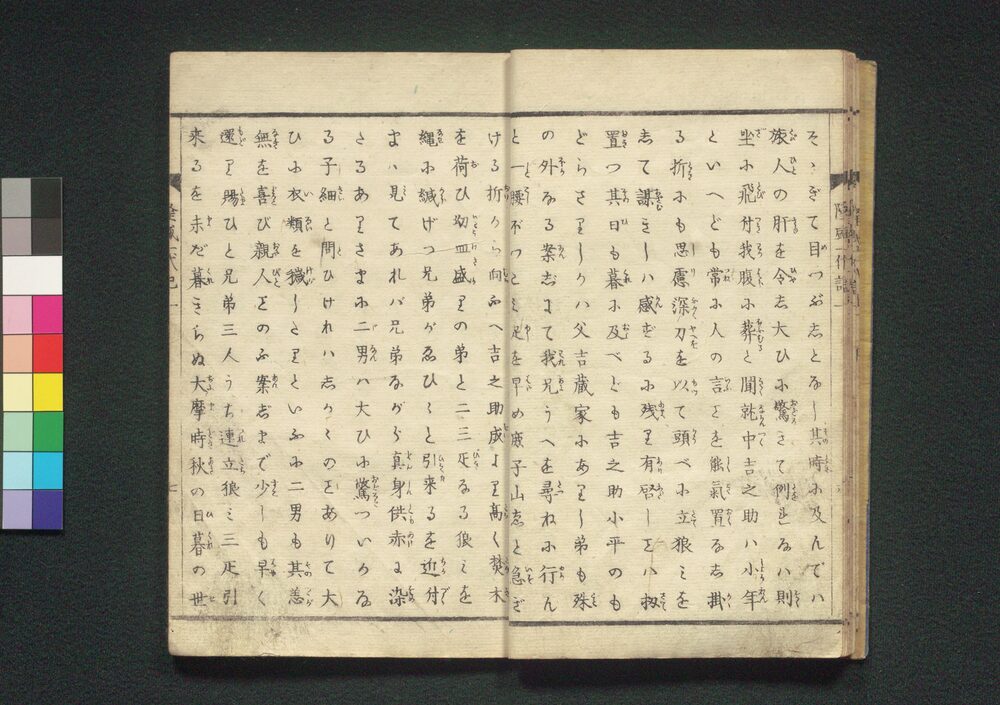 そゝぎて目つぶしとなし其時に及んでハ
旅人の肝を令志大ひに驚きて倒るゝハ則
坐に飛付我腹に葬と聞就中吉之助ハ小年
といへども常に人の言を能氣置なし掛
る折にも思慮深刀を以て頭べに立狼ミを
して謀きしハ感ずるに残り有啓しとハ扨
置つ其日も暮に及べども吉之助小平のも
どらざりしかハ父吉藏家にありし弟も殊
の外なる案じにて我兄うへを尋ねに行ん
と一腰ぶつとミ足を早め鹿子山志と急ぎ
ける折から向ふへ吉之助成より高く焚木
を荷ひ血盛りの弟と二三疋なる狼ミを
縄に縅げつ兄弟がゑひ〳〵と引来るを近付
まゝ見てあれバ兄弟ながら真身供赤に染
さるありさまに二男ハ大ひに驚ついかな
る子細と問ひけれハ志か〳〵のよありて大
ひに衣類を穢したりといふに二男も其恙
無を喜び親人とのふ案じまで少しも早く
還り賜ひと兄弟三人うち連立狼ミ三疋引
来るを未だ暮きらぬ大摩時秋の日暮の世